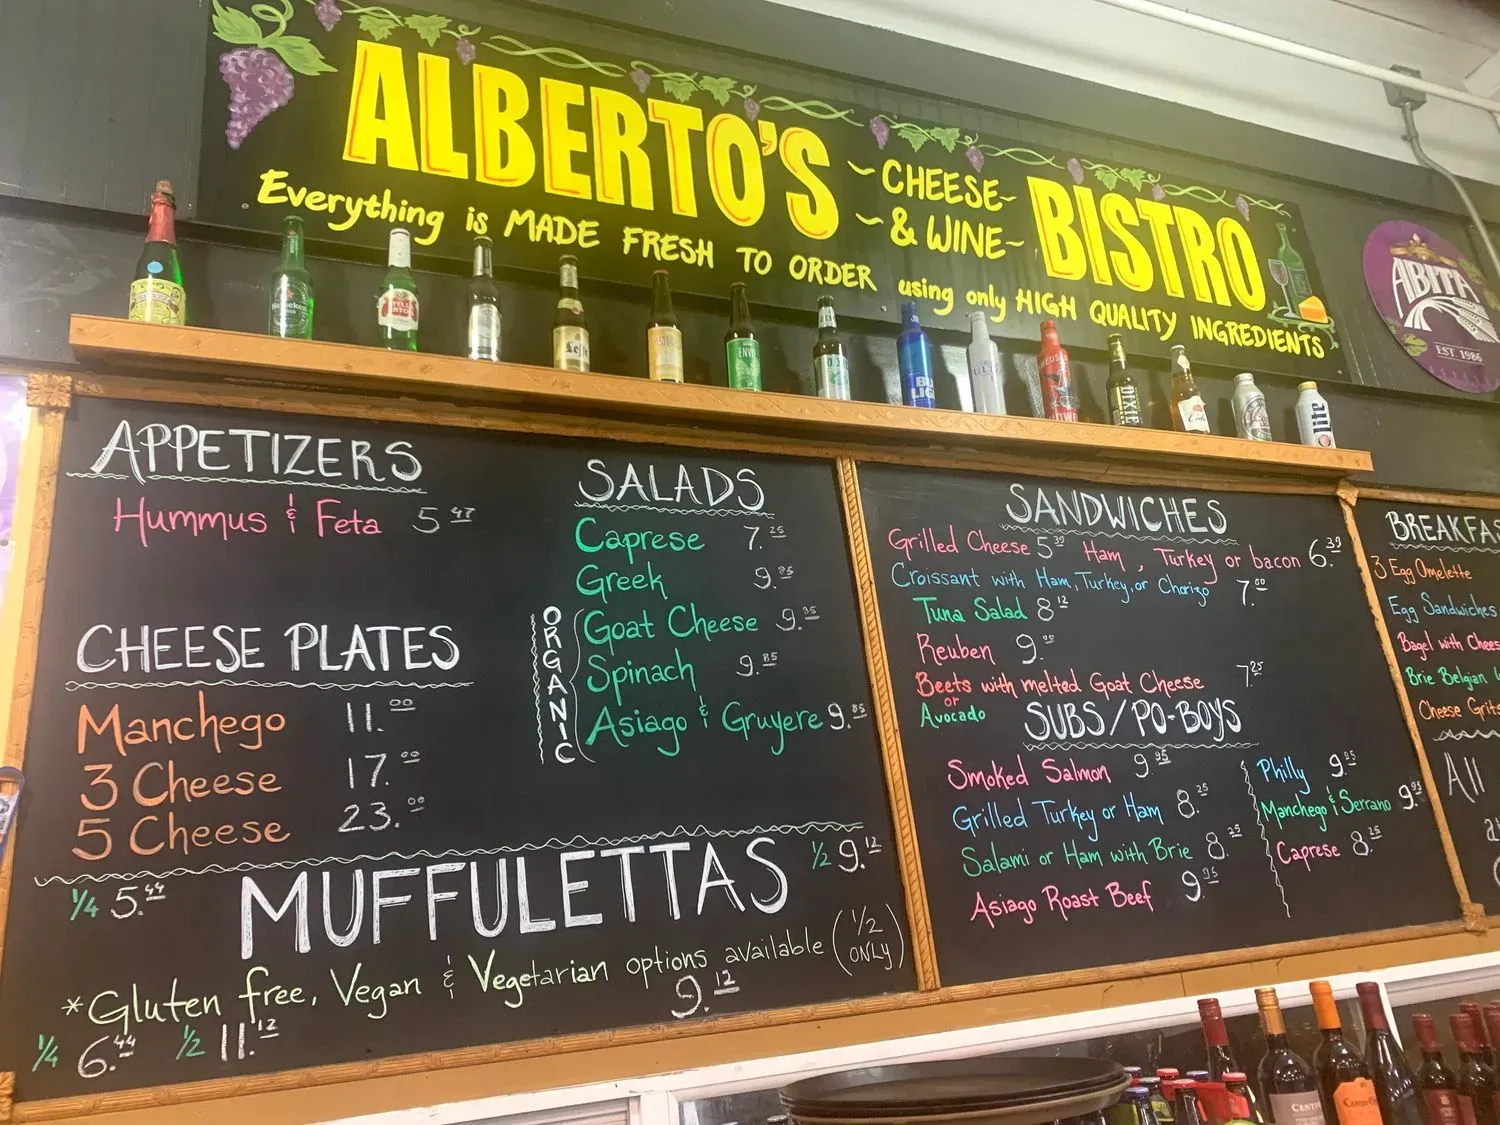 ALBERTO'S ~CHEESE~ & WINE~ BISTRO
Everything is MADE FRESH TO ORDER using only HIGH QUALITY INGREDIENTS
ABITA
EST. 1986
Heineken
Leffe
ENVIE
BUD LIGHT
ULTRA
DIXIE
lite
APPETIZERS
Hummus & Feta 5 47
CHEESE PLATES
Manchego 11.00
3 Cheese 17.00
5 Cheese 23.00
SALADS
Caprese 7.25
Greek 9.95
ORGANIC
Goat Cheese 9.95
Spinach 9.85
Asiago & Gruyere 9.85
MUFFULETTAS
1/4 5.44
1/2 9.12
*Gluten free, Vegan & Vegetarian options available (1/2 ONLY)
9.12
1/4 6.44 1/2 11.12
SANDWICHES
Grilled Cheese 5 39 Ham, Turkey or bacon 6.39
Croissant with Ham, Turkey, or Chorizo 7.00
Tuna Salad 8 12
Reuben 9.00
Beets with melted Goat Cheese 7.25
or
Avocado
SUBS/PO-BOYS
Smoked Salmon 9.95
Grilled Turkey or Ham 8.25
Salami or Ham with Brie 8.25
Asiago Roast Beef 9.95
Philly 9.95
Manchego & Serrano 9.95
Caprese 8.25
BREAKFAS
3 Egg Omelette
Egg Sandwiches
Bagel with Chees
Brie Belgian
Cheese Grits
All